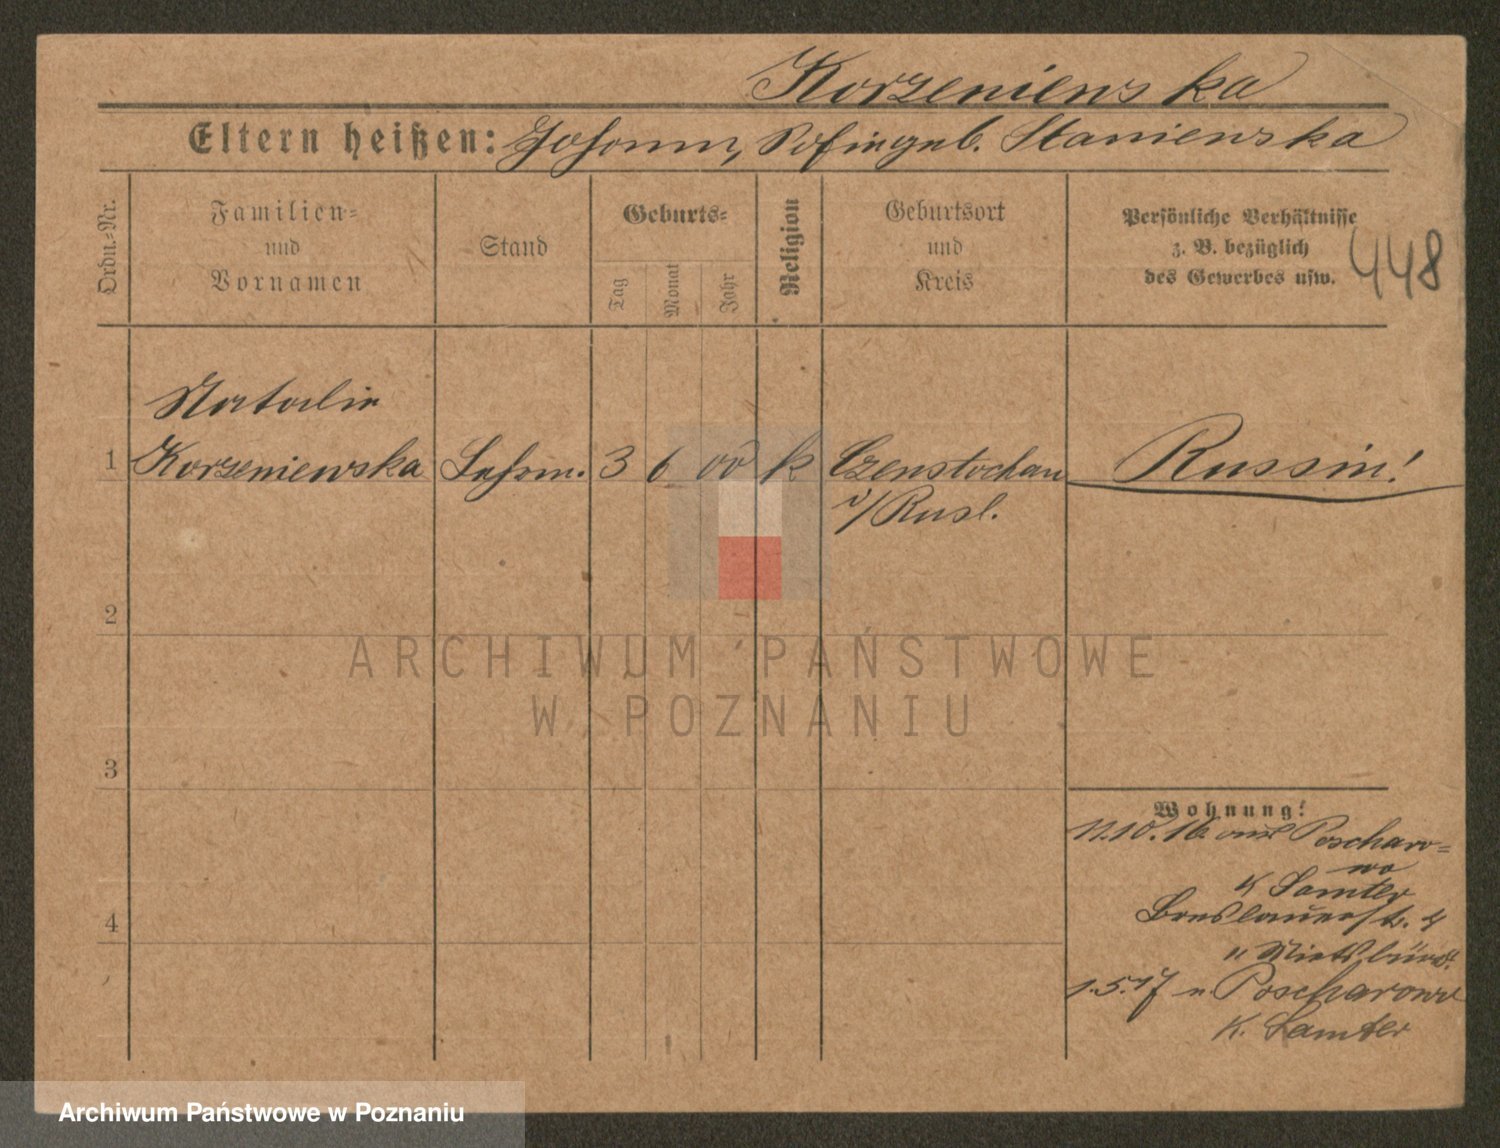 Korzeniewska
Eltern heißen: Johann, Sofie geb. Staniewska
Ordn.-Nr.
Familien- und Vornamen
Stand
Geburts-
Tag
Monat
Jahr
Religion
Geburtsort und Kreis
Persönliche Verhältnisse
z. B. bezüglich
des Gewerbes usw.
448
Natalie
1 Korzeniewska 3 6 00 k Czenstochau Russin!
i/Rusl.
2
3
4
Wohnung:
11.10.16. aus Poscharo=
wo
K Samter
Breslauerst. 4
Mietsbüro
1.5.17 n. Poscharowo
K. Samter
ARCHIWUM PAŃSTWOWE
W POZNANIU
Archiwum Państwowe w Poznaniu